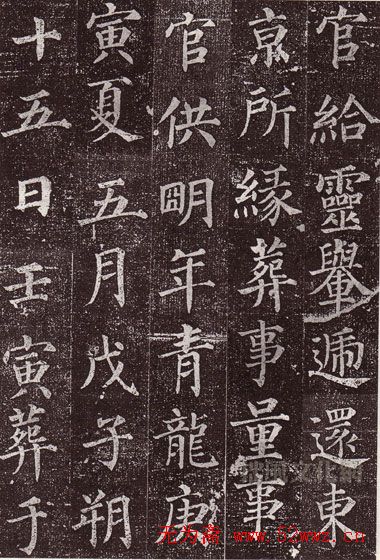 官給靈轝遞還東
亰所緣葬事量事
官供朙年青龍庚
寅夏五月戊子朔
十五日壬寅葬于
无为斋 www.52wwz.cn